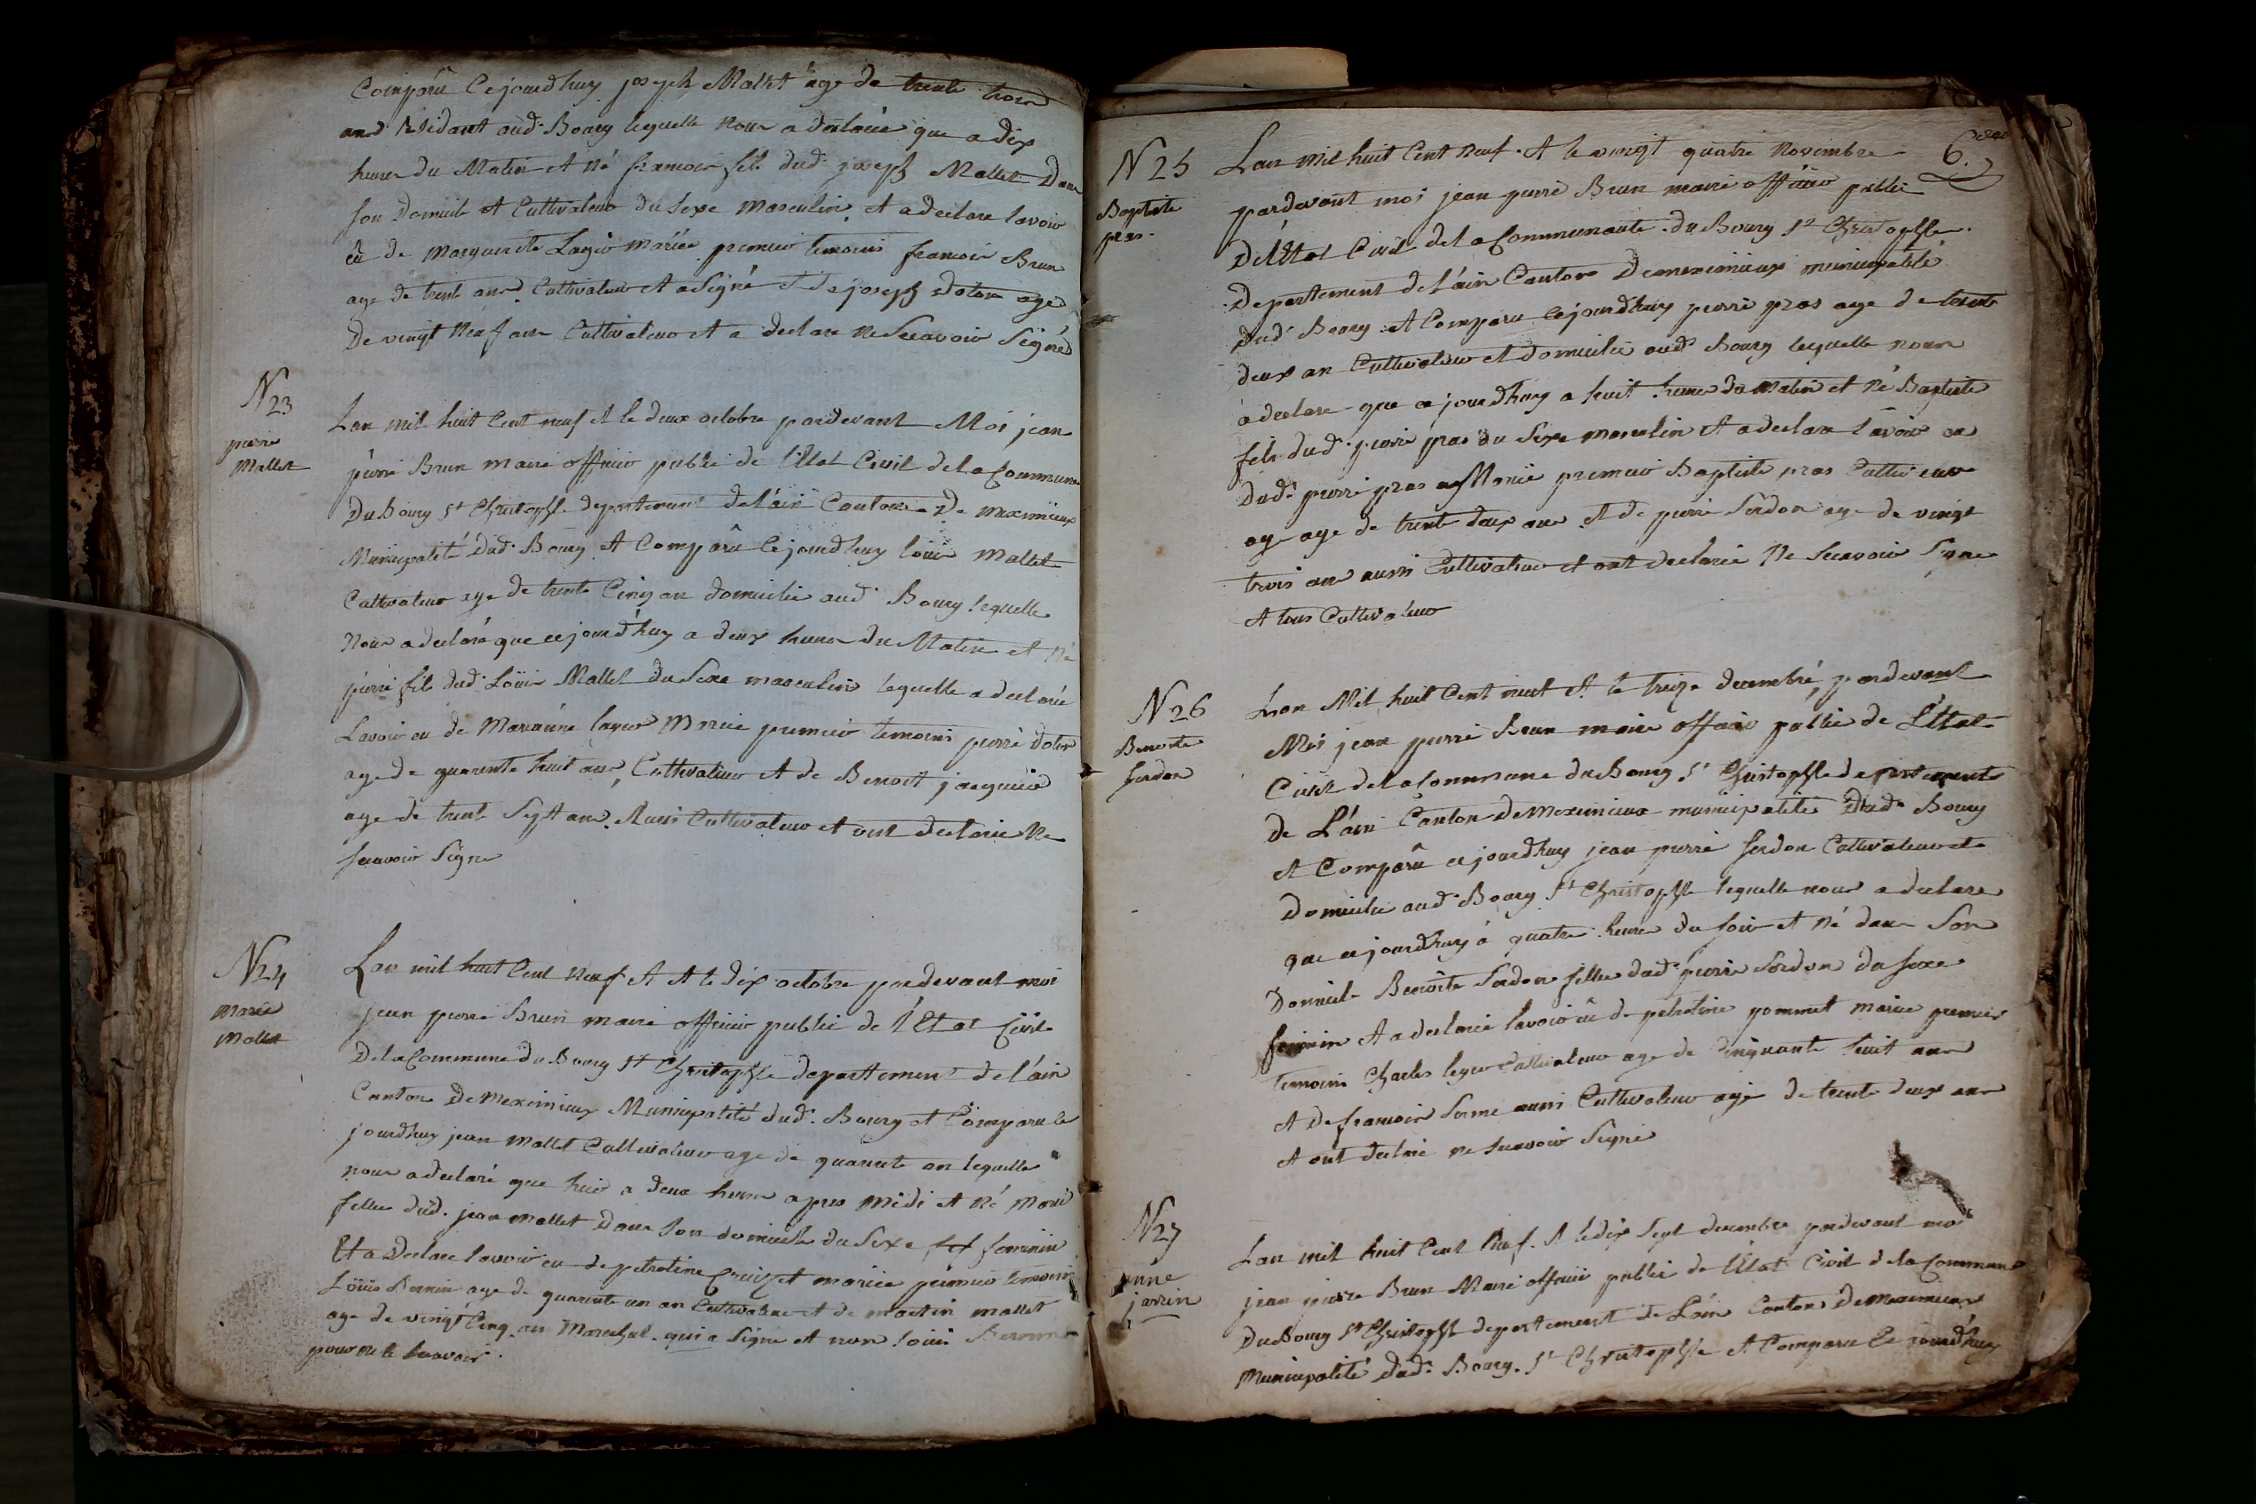 Comparû Cejourdhuy joseph Mallet age de trente trois
ans Résidant aud. Bourg lequelle nous a déclaré que a dix
heures du Matin et Né francois fils dud. joseph Mallet Dans
son Domicile et Cultivateur du sexe masculin et a declare lavoir
eû de Marguerite Lager mariée premier temoins francois Brun
age de trente ans Cultivateur et a Signé et de joseph Doton age
De vingt Neuf ans Cultivateur et a declare ne Scavoir Signé
N 23
pierre
Mallet
Lan mil huit Cent neuf et le deux octobre pardevant Moi jean
pierre Brun maire officier public de l'Etat Civil de la Commune
Du Bourg St Christophle departement de l'ain Canton De meximieux
Municipalité dud. Bourg et Comparû Cejourdhuy loüis Mallet
Cultivateur age de trente Cinq an domicilie aud. Bourg lequelle
Nous a declaré que cejourd'huy a deux heures du Matin et Né
pierre fils dud. Loüis Mallet du Sexe masculin lequelle a declaré
Lavoir eu de Lager Mariée premier temoins pierre Doton
age de quarente huit ans Cultivateur et de Benoit jacquier
age de trent Sept ans Aussi Cultivateur et ont declarée Ne
Scavoir Signe
N 24
Marie
Mallet
Lan mil huit Cent Neuf et et le dix octobre pardevant moi
jean pierre Brun maire officier public de l'Etat Civil
De la Commune du Bourg St Christophle departement de l'ain
Canton De Meximieux Municipalité dud. Bourg et Comparu le
jourdhuy jean Mallet Cultivateur age de quarente an lequelle
nous a declaré que hier a deux heures apres Midi et Né Marie
fille dud. jean Mallet Dans son domicile du Sexe feminin
Et a Declare lavoir eu de petrotine mariée premier temoin
Loüis age de quarente un an Cultivateur et de martin mallet
age de vingt Cinq an Marechal qui a Signe et non loüis
pour ne le Scavoir.
6.
N 25
Baptiste
pras.
Lan mil huit Cent Neuf. et le vingt quatre Novembre
pardevant moi jean pierre Brun maire officier public
De l'Etat Civil de la Communauté du Bourg St Christophle.
Departement de l'ain Canton De meximieux municipalité
dud. Bourg et Comparu Cejourdhuy pierre pras age de trente
deux an Cultivateur et domicilie aud. Bourg lequelle nous
a declare que cejourdhuy a huit heures du Matin et Né Baptiste
fils dud. pierre pras du Sexe masculin et a declare l'avoir eu
dud. pierre pras premier Baptiste pras Cultivateur
age age de trente deux ans et de pierre Serdon age de vingt
trois ans aussi Cultivateur et ont declarée Ne Scavoir Signe
et tous Cultivateur
N 26
Benoite
Serdon
Lan Mil huit Cent neuf et le treize decembre, pardevant
Moi jean pierre Brun maire officier public de L'Etat
Civil de la Commune du Bourg St Christophle departement
de L'ain Canton de Meximieux municipalité Dud. Bourg
et Comparû cejourdhuy jean pierre Serdon Cultivateur et
Domicilie aud. Bourg St Christophle lequelle nous a declare
que cejourdhuy a quatre heures du soir et Né dans Son
Domicile Benoite Serdon fille dud. pierre Serdon du sexe
feminin et a declaré lavoir eû de petrotine pommet mariée premier
temoins Charles leger Cultivateur age de Cinquante huit ans
et de francois aussi Cultivateur age de trente deux ans
et ont declaré ne Scavoir Signé
N 27
anne
jarrin
Lan mil huit Cent Neuf. et le dix Sept decembre pardevant moi
jean pierre Brun Maire officier public de l'Etat Civil de la Commune
Du Bourg St Christophle departement de L'ain Canton De Meximieux
Municipalité Dud. Bourg. St Christophle et Comparu Cejourdhuy